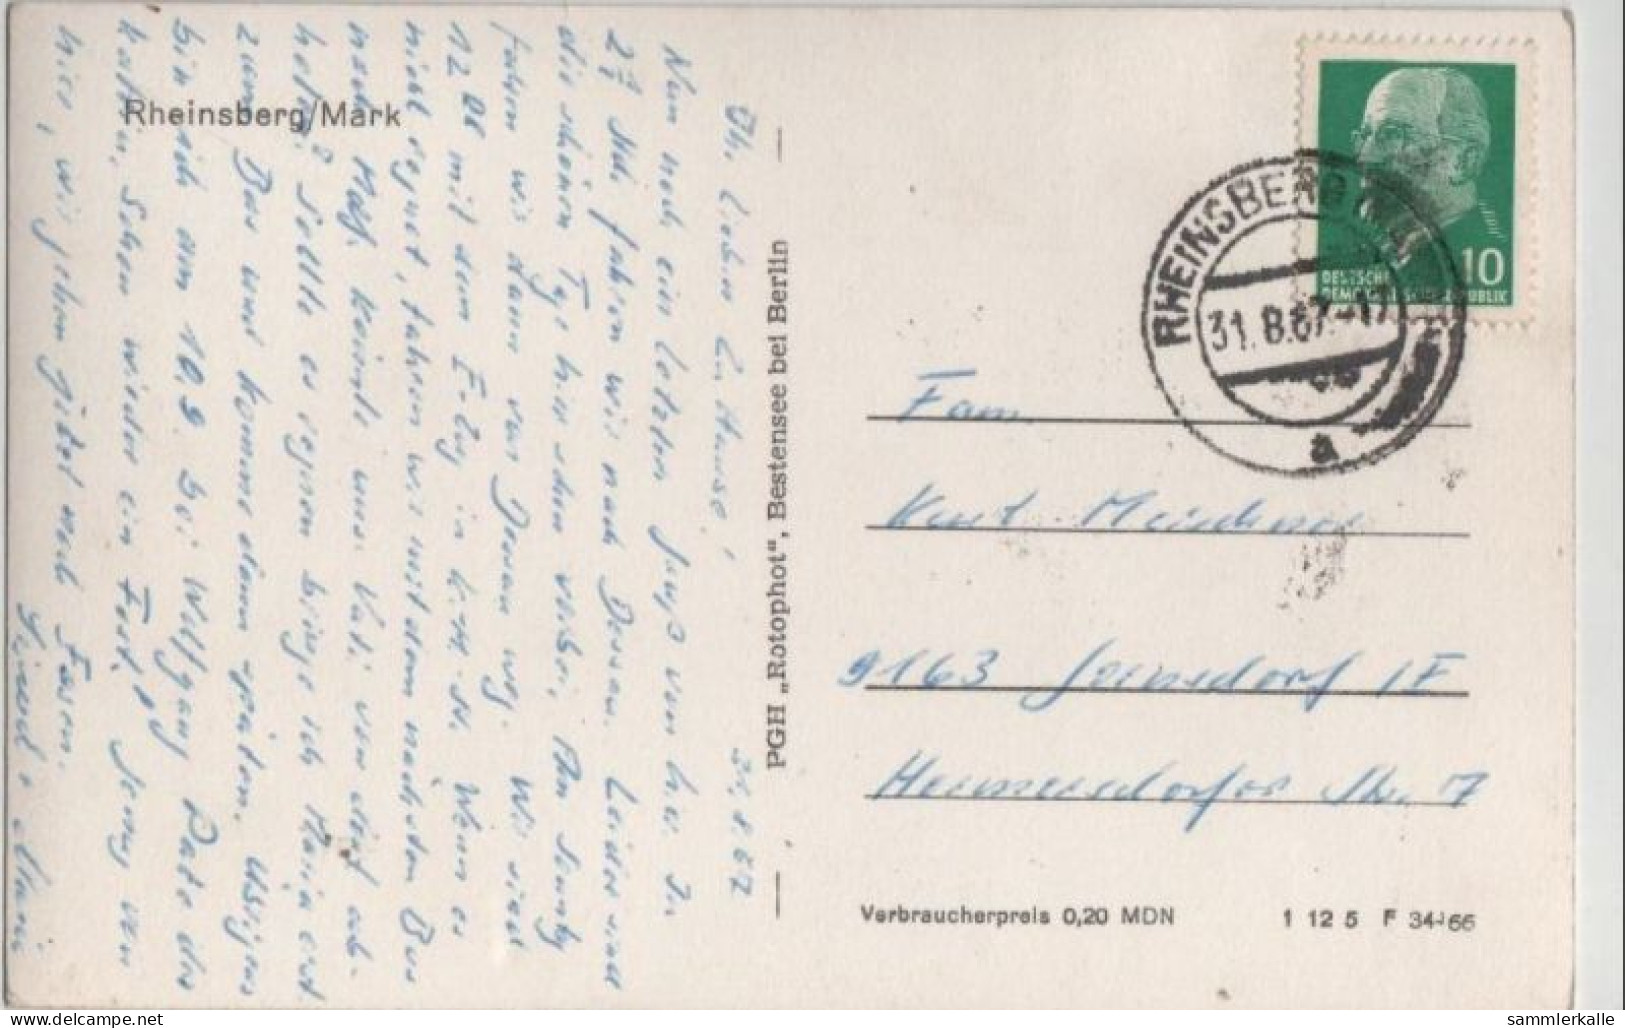 Rheinsberg/Mark
31.8.67
Ihr Lieben zu Hause!
Nun noch ein letzten Gruß von hier. In
fahren wir nach Dessau. Leider sind
die schönen Tage hier schon vorbei. Am
fahren wir dann von Dessau weg. Wir sind
12 08 mit dem E-Zug in Wenn es
nicht regnet, fahren wir mit dem nächsten Bus
nach könnte uns Vati von dort ab-
holen? Sollte es regnen bringe ich Maria erst
zum Bus und komme dann später. Übrigens
bin ich am 10.9. bei Wolfgang Pate der
Schon wieder ein Fest. von
hier, wir gehen jetzt zum Essen.
PGH „Rotophot", Bestensee bei Berlin
10
DEUTSCHE
DEMOKRATISCHE REPUBLIK
RHEINSBERG (MARK)
31.8.67.-17
a
Fam.
Kurt Meichsner
9163 Gornsdorf i E
Hermersdorfer Str. 7
Verbraucherpreis 0,20 MDN
1 12 5 F 34-J 66
www.delcampe.net
sammlerkalle